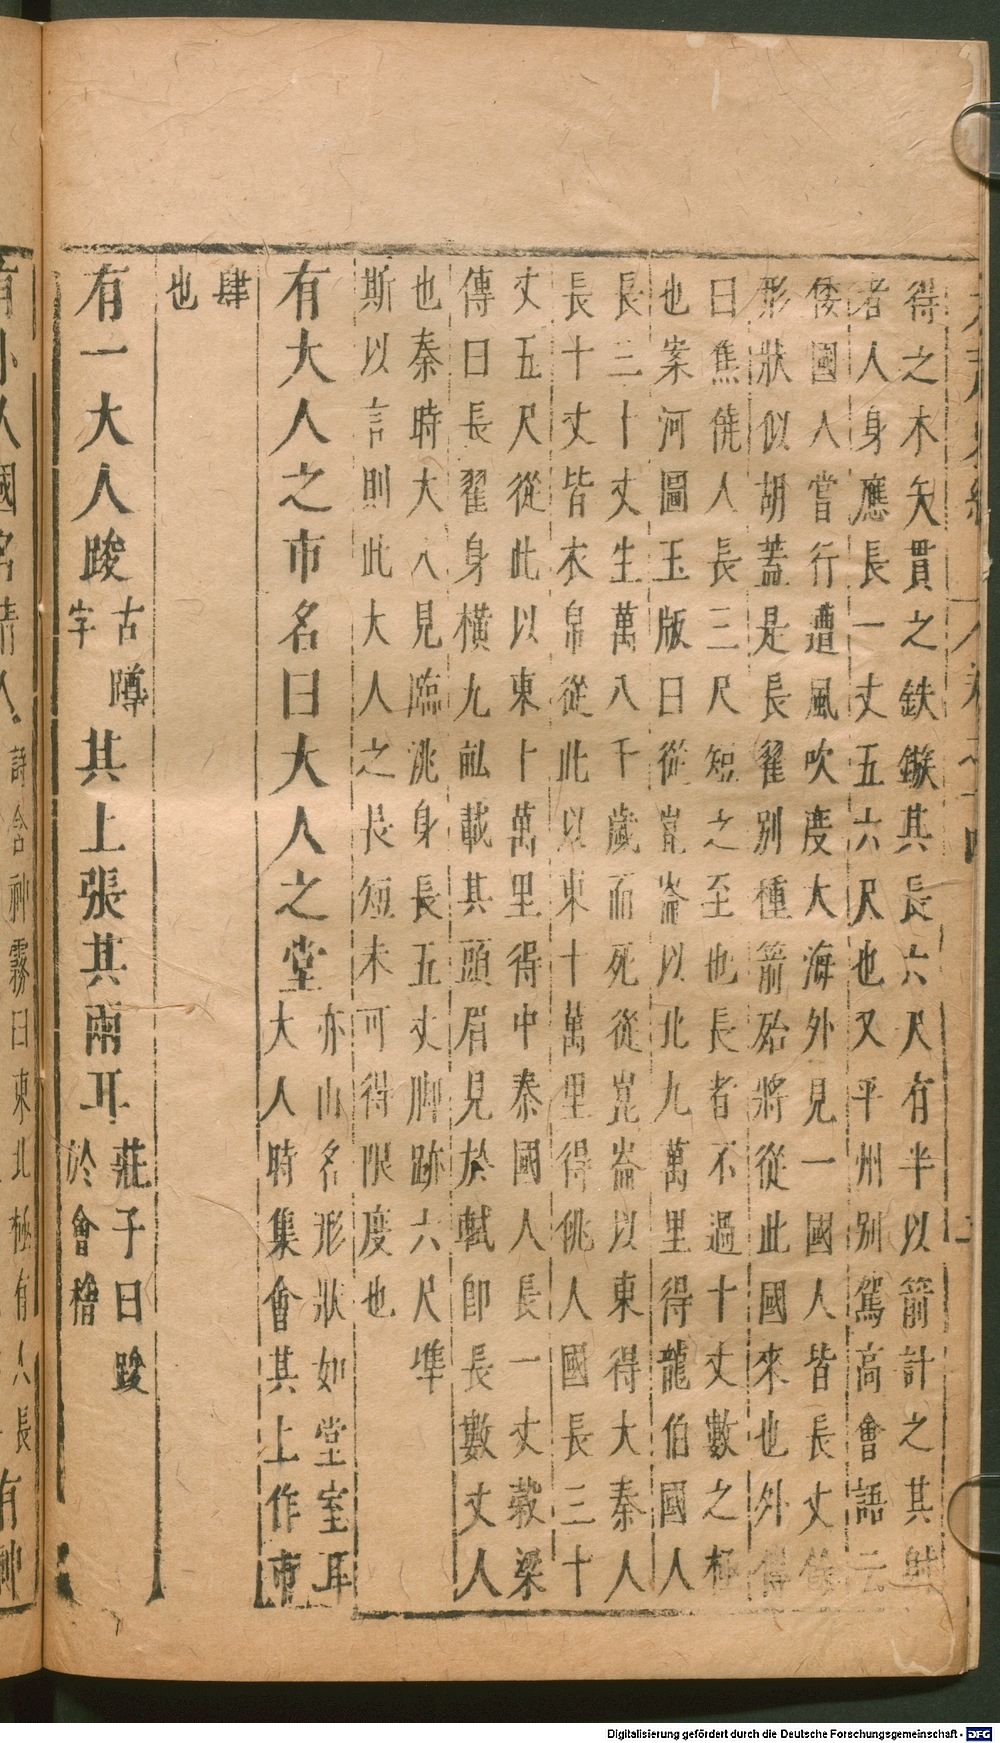 得之木矢貫之鉄鏃其長六尺有半以箭計之其射
者人身應長一丈五六尺也又平州別駕高會語云
倭國人嘗行遭風吹度大海外見一國人皆長丈餘
形狀似胡蓋是長翟別種箭殆將從此國來也外傳
曰焦僥人長三尺短之至也長者不過十丈數之極
也案河圖玉版曰從崑崙以北九萬里得龍伯國人
長三十丈生萬八千歲而死從崑崙以東得大秦人
長十丈皆衣帛從此以東十萬里得佻人國長三十
丈五尺從此以東十萬里得中秦國人長一丈穀梁
傳曰長翟身橫九畝載其頭眉見於軾即長數丈人
也秦時大人見臨洮身長五丈脚跡六尺準
斯以言則此大人之長短未可得限度也
有大人之市名曰大人之堂亦山名形狀如堂室耳
大人時集會其上作市
肆
也
有一大人踆古蹲
字其上張其兩耳莊子曰踆
於會稽
有小人國名靖人詩含神霧曰東北極有人長
有神
Digitalisierung gefördert durch die Deutsche Forschungsgemeinschaft - DFG